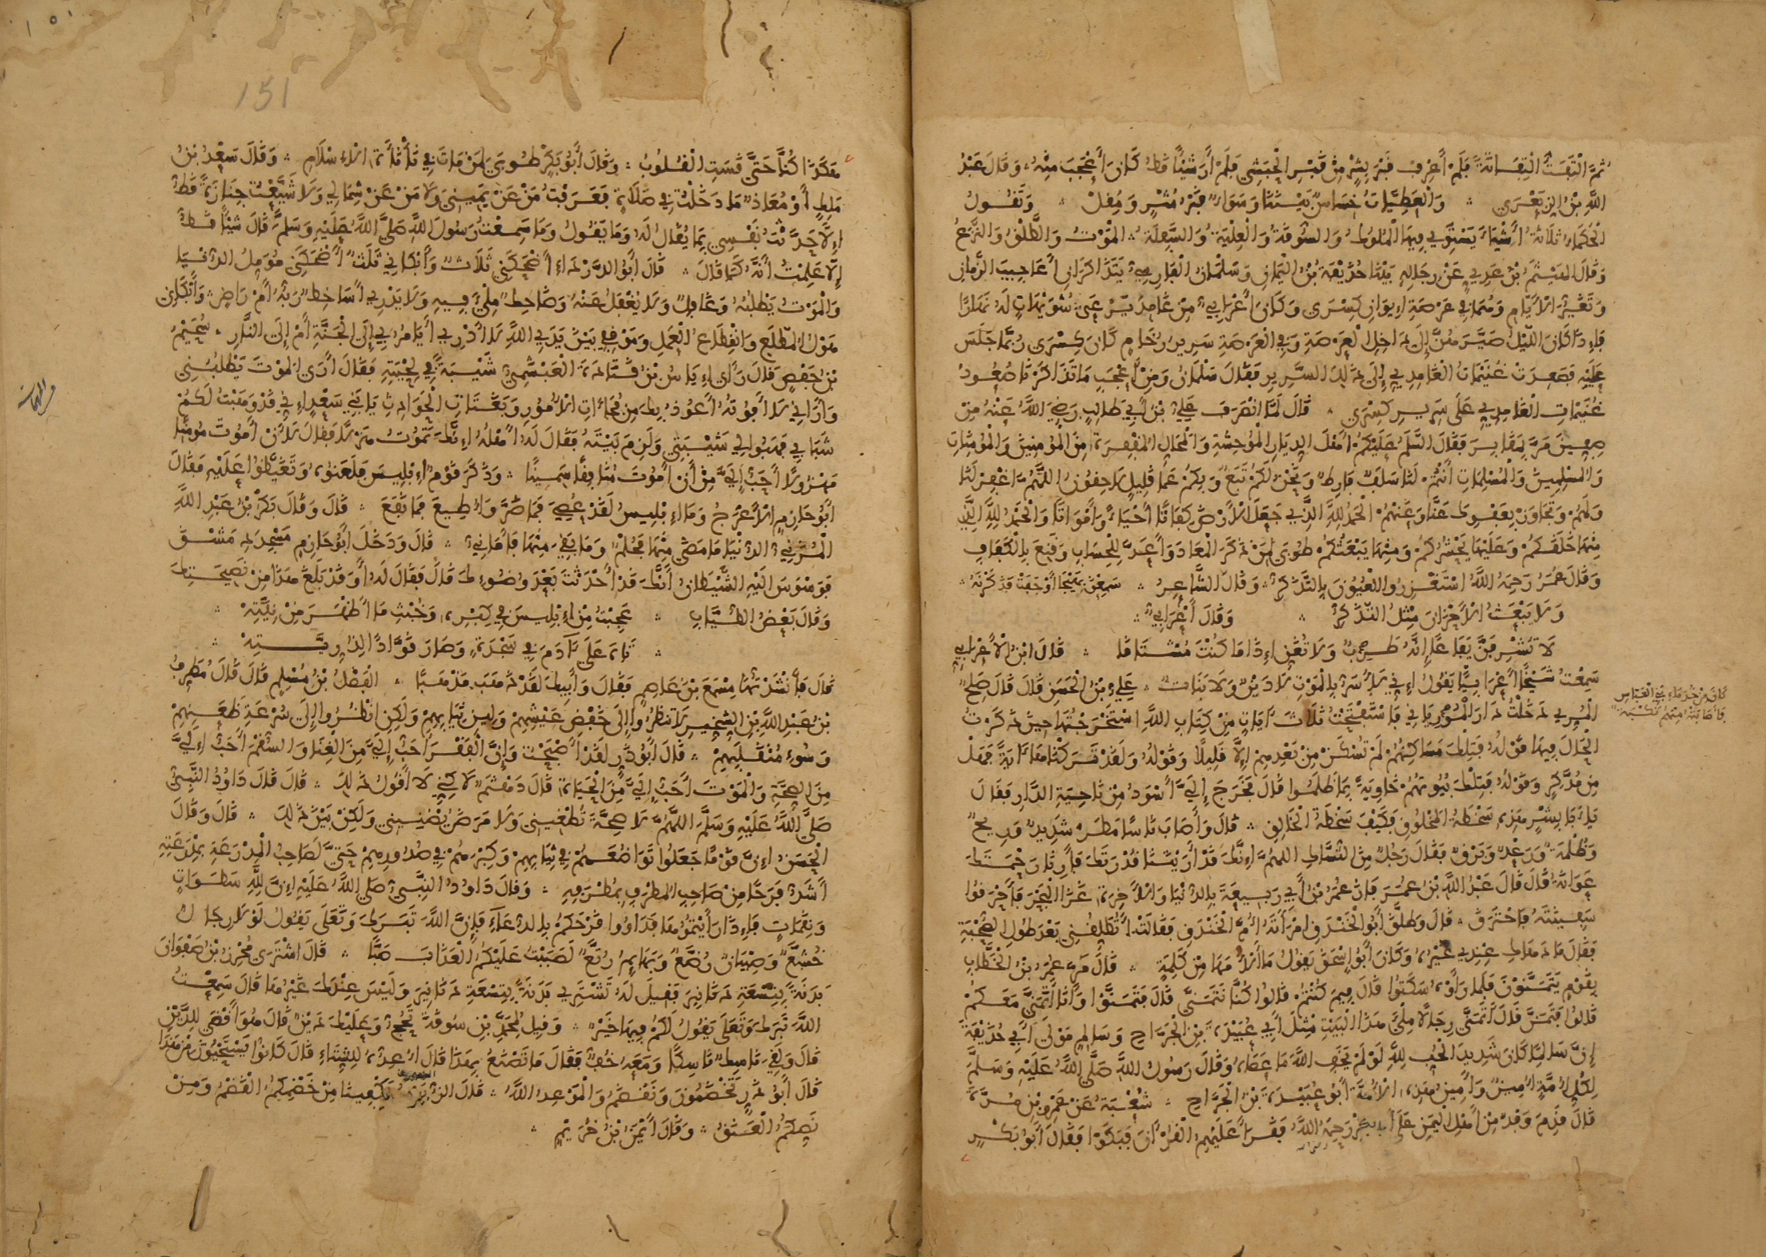 ثُمَّ الْتَفَتُّ الْتِفَاتَةً فَلَمْ أَعْرِفْ قَبْرَ بِشْرٍ مِنْ قَبْرِ الْحَبَشِيِّ فَلَمْ أَرَ شَيْئاً قَطُّ كَانَ أَعْجَبَ مِنْهُ وَقَالَ عَبْدُ
اللَّهِ بْنُ الزِّبَعْرَى وَالْعَطِيَّاتُ خِسَاسٌ بَيْنَنَا وَسَوَاءٌ قَبْرُ مُثْرٍ وَمُقِلْ وَتَقُولُ
الْحُكَمَاءُ ثَلَاثَةُ أَشْيَاءَ يَسْتَوِي فِيهَا الْمُلُوكُ وَالسُّوقَةُ وَالْعِلْيَةُ وَالسِّفْلَةُ الْمَوْتُ وَالطَّلْقُ وَالنَّزْعُ
وَقَالَ الْهَيْثَمُ بْنُ عَدِيٍّ عَنْ رِجَالِهِ بَيْنَا حُذَيْفَةُ بْنُ الْيَمَانِ وَسَلْمَانُ الْفَارِسِيُّ يَتَذَاكَرَانِ أَعَاجِيبَ الزَّمَانِ
وَتَغَيُّرَ الْأَيَّامِ وَهُمَا فِي عَرْصَةِ إِيوَانِ كِسْرَى وَكَانَ أَعْرَابِيٌّ مِنْ غَامِدٍ يَرْعَى شُوَيْهَاتٍ لَهُ نَهَارًا
فَإِذَا كَانَ اللَّيْلُ صَيَّرَهُنَّ إِلَى دَاخِلِ الْعَرْصَةِ وَفِي الْعَرْصَةِ سَرِيرُ رُخَامٍ كَانَ كِسْرَى رُبَّمَا جَلَسَ
عَلَيْهِ فَصَعِدَتْ غُنَيْمَاتُ الْغَامِدِيِّ إِلَى ذَلِكَ السَّرِيرِ فَقَالَ سَلْمَانُ وَمِنْ أَعْجَبِ مَا تَذَاكَرْنَا صُعُودُ
غُنَيْمَاتِ الْغَامِدِيِّ عَلَى سَرِيرِ كِسْرَى قَالَ لَمَّا انْصَرَفَ عَلِيُّ بْنُ أَبِي طَالِبٍ رَضِيَ اللَّهُ عَنْهُ مِنْ
صِفِّينَ مَرَّ بِمَقَابِرَ فَقَالَ السَّلَامُ عَلَيْكُمْ أَهْلَ الدِّيَارِ الْمُوحِشَةِ وَالْمَحَالِّ الْمُقْفِرَةِ مِنَ الْمُؤْمِنِينَ وَالْمُؤْمِنَاتِ
وَالْمُسْلِمِينَ وَالْمُسْلِمَاتِ أَنْتُمْ لَنَا سَلَفٌ فَارِطٌ وَنَحْنُ لَكُمْ تَبَعٌ وَبِكُمْ عَمَّا قَلِيلٍ لَاحِقُونَ اللَّهُمَّ اغْفِرْ لَنَا
وَلَهُمْ وَتَجَاوَزْ بِعَفْوِكَ عَنَّا وَعَنْهُمْ الْحَمْدُ لِلَّهِ الَّذِي جَعَلَ الْأَرْضَ كِفَاتًا أَحْيَاءً وَأَمْوَاتًا وَالْحَمْدُ لِلَّهِ الَّذِي
مِنْهَا خَلَقَكُمْ وَعَلَيْهَا يَحْشُرُكُمْ وَمِنْهَا يَبْعَثُكُمْ طُوبَى لِمَنْ ذَكَرَ الْمَعَادَ وَأَعَدَّ لِلْحِسَابِ وَقَنِعَ بِالْكَفَافِ
وَقَالَ عُمَرُ رَحِمَهُ اللَّهُ اسْتَغْزِرُوا الْعُيُونَ بِالتَّذَكُّرِ وَقَالَ الشَّاعِرُ سَمِعْنَ
وَلَا يَبْعَثُ الْأَحْزَانَ مِثْلُ التَّذَكُّرِ وَقَالَ أَعْرَابِيٌّ
لَا تُشْرِفَنَّ يَفَاعًا إِنَّهُ طَرَبٌ وَلَا تُغَنِّ إِذَا مَا كُنْتَ مُشْتَاقَا قَالَ ابْنُ الْأَعْرَابِيِّ
سَمِعْتُ شَيْخًا أَعْرَابِيًّا يَقُولُ إِنِّي لَأُسَرُّ بِالْمَوْتِ لَا دَيْنٌ وَلَا بَنَاتٌ عَلِيُّ بْنُ الْحَسَنِ قَالَ قَالَ صَالِحٌ
الْمُرِّيُّ دَخَلْتُ دَارَ الْمُورِيَانِيِّ فَاسْتَفْتَحْتُ ثَلَاثَ آيَاتٍ مِنْ كِتَابِ اللَّهِ اسْتَخْرَجْتُهَا حِينَ ذَكَرْتُ
الْحَالَ فِيهَا قَوْلُهُ فَتِلْكَ مَسَاكِنُهُمْ لَمْ تُسْكَنْ مِنْ بَعْدِهِمْ إِلَّا قَلِيلًا وَقَوْلُهُ وَلَقَدْ تَرَكْنَاهَا آيَةً فَهَلْ
مِنْ مُدَّكِرٍ وَقَوْلُهُ فَتِلْكَ بُيُوتُهُمْ خَاوِيَةً بِمَا ظَلَمُوا قَالَ فَخَرَجَ إِلَيَّ أَسْوَدُ مِنْ نَاحِيَةِ الدَّارِ فَقَالَ
يَا أَبَا بِشْرٍ هَذِهِ سَخْطَةُ الْمَخْلُوقِ فَكَيْفَ سَخْطَةُ الْخَالِقِ قَالَ وَأَصَابَ نَاسًا مَطَرٌ شَدِيدٌ وَرِيحٌ
وَظُلْمَةٌ وَرَعْدٌ وَبَرْقٌ فَقَالَ رَجُلٌ مِنَ النُّسَّاكِ اللَّهُمَّ إِنَّكَ قَدْ أَرَيْتَنَا قُدْرَتَكَ فَأَرِنَا رَحْمَتَكَ
عَوَانَةُ قَالَ قَالَ عَبْدُ اللَّهِ بْنُ عُمَرَ فَازَ عُمَرُ بْنُ أَبِي رَبِيعَةَ بِالدُّنْيَا وَالْآخِرَةِ غَزَا الْبَحْرَ فَأَحْرَقُوا
سَفِينَتَهُ فَاحْتَرَقَ قَالَ وَطَلَّقَ أَبُو الْخَنْدَقِ امْرَأَتَهُ أُمَّ الْخَنْدَقِ فَقَالَتْ أَتُطَلِّقُنِي بَعْدَ طُولِ الصُّحْبَةِ
فَقَالَ مَا دَهَاكِ عِنْدِي غَيْرُهُ وَكَانَ أَبُو إِسْحَقَ يَقُولُ مَا أَلْأَمَهَا مِنْ كَلِمَةٍ قَالَ مَرَّ عُمَرُ بْنُ الْخَطَّابِ
بِقَوْمٍ يَتَمَنَّوْنَ فَلَمَّا رَأَوْهُ سَكَتُوا قَالَ فِيمَ كُنْتُمْ قَالُوا كُنَّا نَتَمَنَّى قَالَ فَتَمَنَّوْا وَأَنَا أَتَمَنَّى مَعَكُمْ
قَالُوا فَتَمَنَّ قَالَ أَتَمَنَّى رِجَالًا مِلْءَ هَذَا الْبَيْتِ مِثْلَ أَبِي عُبَيْدَةَ بْنِ الْجَرَّاحِ وَسَالِمٍ مَوْلَى أَبِي حُذَيْفَةَ
إِنَّ سَالِمًا كَانَ شَدِيدَ الْحُبِّ لِلَّهِ لَوْ لَمْ يَخَفِ اللَّهَ مَا عَصَاهُ وَقَالَ رَسُولُ اللَّهِ صَلَّى اللَّهُ عَلَيْهِ وَسَلَّمَ
لِكُلِّ أُمَّةٍ أَمِينٌ وَأَمِينُ هَذِهِ الْأُمَّةِ أَبُو عُبَيْدَةَ بْنُ الْجَرَّاحِ شُعْبَةُ عَنْ عَمْرِو بْنِ مُرَّةَ
قَالَ قَدِمَ وَفْدٌ مِنْ أَهْلِ الْيَمَنِ عَلَى أَبِي بَكْرٍ رَحِمَهُ اللَّهُ فَقَرَأَ عَلَيْهِمُ الْقُرْآنَ فَبَكَوْا فَقَالَ أَبُو بَكْرٍ
151
هَكَذَا كُنَّا حَتَّى قَسَتِ الْقُلُوبُ وَقَالَ أَبُو بَكْرٍ طُوبَى لِمَنْ مَاتَ فِي نَأْنَأَةِ الْإِسْلَامِ وَقَالَ سَعْدُ بْنُ
مَالِكٍ أَوْ مُعَاذٌ مَا دَخَلْتُ فِي صَلَاةٍ فَعَرَفْتُ مَنْ عَنْ يَمِينِي وَلَا مَنْ عَنْ شِمَالِي وَلَا شَيَّعْتُ جِنَازَةً قَطُّ
إِلَّا حَدَّثْتُ نَفْسِي بِمَا يُقَالُ لَهُ وَمَا يَقُولُ وَمَا سَمِعْتُ رَسُولَ اللَّهِ صَلَّى اللَّهُ عَلَيْهِ وَسَلَّمَ قَالَ شَيْئًا قَطُّ
إِلَّا عَلِمْتُ أَنَّهُ كَمَا قَالَ قَالَ أَبُو الدَّرْدَاءِ أَضْحَكَنِي ثَلَاثٌ وَأَبْكَانِي ثَلَثٌ أَضْحَكَنِي مُؤَمِّلُ الدُّنْيَا
وَالْمَوْتُ يَطْلُبُهُ وَغَافِلٌ وَلَا يُغْفَلُ عَنْهُ وَضَاحِكٌ مِلْءَ فِيهِ وَلَا يَدْرِي أَسَاخِطٌ رَبُّهُ أَمْ رَاضٍ وَأَبْكَانِي
هَوْلُ الْمُطَّلَعِ وَانْقِطَاعُ الْعَمَلِ وَمَوْقِفِي بَيْنَ يَدَيِ اللَّهِ لَا أَدْرِي أَيَأْمُرُ بِي إِلَى الْجَنَّةِ أَمْ إِلَى النَّارِ سُحَيْمُ
بْنُ حَفْصٍ قَالَ رَأَى إِيَاسُ بْنُ قَتَادَةَ الْعَبْشَمِيُّ شَيْبَةً فِي لِحْيَتِهِ فَقَالَ أَرَى الْمَوْتَ يَطْلُبُنِي
وَأَرَانِي لَا أَفُوتُهُ أَعُوذُ بِكَ مِنْ فُجَاءَاتِ الْأُمُورِ وَبَغَتَاتِ الْحَوَادِثِ يَا بَنِي سَعْدٍ إِنِّي قَدْ وَهَبْتُ لَكُمْ
شَبَابِي فَهَبُوا لِي شَيْبَتِي وَلَزِمَ بَيْتَهُ فَقَالَ لَهُ أَهْلُهُ إِنَّكَ تَمُوتُ هَزْلًا فَقَالَ لَأَنْ أَمُوتَ مُؤْمِنًا
مَهْزُولًا أَحَبُّ إِلَيَّ مِنْ أَنْ أَمُوتَ مُنَافِقًا سَمِينًا وَذَكَرَ قَوْمٌ إِبْلِيسَ فَلَعَنُوهُ وَتَغَيَّظُوا عَلَيْهِ فَقَالَ
أَبُو حَازِمٍ الْأَعْرَجُ وَمَا إِبْلِيسُ لَقَدْ عُصِيَ فَمَا ضَرَّ وَأُطِيعَ فَمَا نَفَعَ قَالَ وَقَالَ بَكْرُ بْنُ عَبْدِ اللَّهِ
الْمُزَنِيُّ الدُّنْيَا مَا مَضَى مِنْهَا فَحُلْمٌ وَمَا بَقِيَ مِنْهَا فَأَمَانِيُّ قَالَ وَدَخَلَ أَبُو حَازِمٍ مَسْجِدَ دِمَشْقَ
فَوَسْوَسَ إِلَيْهِ الشَّيْطَانُ أَنَّكَ قَدْ أَحْدَثْتَ بَعْدَ وُضُوءِكَ قَالَ فَقَالَ لَهُ أَوَقَدْ بَلَغَ هَذَا مِنْ نَصِيحَتِكَ
وَقَالَ بَعْضُ الطُّيَّابِ عَجِبْتُ مِنْ إِبْلِيسَ فِي كِبْرِهِ وَخُبْثِ مَا أَظْهَرَ مِنْ نِيَّتِهْ
تَاهَ عَلَى آدَمَ فِي سَجْدَةٍ وَصَارَ قَوَّادًا لِذُرِّيَّتِهْ
قَالَ فَأَنْشَدْتُهَا مِسْمَعَ بْنَ عَاصِمٍ فَقَالَ وَأَبِيكَ لَقَدْ ذَهَبَ مَذْهَبًا الْفَضْلُ بْنُ مُسْلِمٍ قَالَ قَالَ مُطَرِّفُ
بْنُ عَبْدِ اللَّهِ بْنِ الشِّخِّيرِ لَا تَنْظُرُوا إِلَى خَفْضِ عَيْشِهِمْ وَلِينِ ثِيَابِهِمْ وَلَكِنِ انْظُرُوا إِلَى سُرْعَةِ ظَعْنِهِمْ
وَسُوءِ مُنْقَلَبِهِمْ قَالَ أَبُو ذَرٍّ لَقَدْ أَصْبَحْتُ وَإِنَّ الْفَقْرَ أَحَبُّ إِلَيَّ مِنَ الْغِنَى وَالسُّقْمَ أَحَبُّ إِلَيَّ
مِنَ الصِّحَّةِ وَالْمَوْتَ أَحَبُّ إِلَيَّ مِنَ الْحَيَاةِ قَالَ هَيْثَمٌ لَكِنِّي لَا أَقُولُ ذَلِكَ قَالَ قَالَ دَاوُدُ النَّبِيُّ
صَلَّى اللَّهُ عَلَيْهِ وَسَلَّمَ اللَّهُمَّ لَا صِحَّةً تُطْغِينِي وَلَا مَرَضٌ يُضْنِينِي وَلَكِنْ بَيْنَ ذَلِكَ قَالَ وَقَالَ
الْحَسَنُ إِنَّ قَوْمًا جَعَلُوا تَوَاضُعَهُمْ فِي ثِيَابِهِمْ وَكِبْرَهُمْ فِي صُدُورِهِمْ حَتَّى لَصَاحِبُ الْمِدْرَعَةِ بِمِدْرَعَتِهِ
أَشَدُّ فَرَحًا مِنْ صَاحِبِ الْمِطْرَفِ بِمُطْرَفِهِ وَقَالَ دَاوُدُ النَّبِيُّ صَلَّى اللَّهُ عَلَيْهِ إِنَّ لِلَّهِ سَطَوَاتٍ
وَنِقْمَاتٍ فَإِذَا رَأَيْتُمُوهَا فَدَاوُوا قُرْحَكُمْ بِالدُّعَاءِ فَإِنَّ اللَّهَ تَبَرَكَ وَتَعَلَى يَقُولُ لَوْلَا رِجَالٌ
خُشَّعٌ وَصِبْيَانٌ رُضَّعٌ وَبَهَائِمُ رُتَّعٌ لَصَبَبْتُ عَلَيْكُمُ الْعَذَابَ صَبًّا قَالَ اشْتَرَى صَفْوَانُ بْنُ مُحْرِزٍ
بَدَنَةً بِتِسْعَةِ دَنَانِيرَ فَقِيلَ لَهُ تَشْتَرِي بَدَنَةً بِتِسْعَةِ دَنَانِيرَ وَلَيْسَ عِنْدَكَ غَيْرُهَا قَالَ سَمِعْتُ
اللَّهَ تَبَرَكَ وَتَعَلَى يَقُولُ لَكُمْ فِيهَا خَيْرٌ وَقِيلَ لِمُحَمَّدِ بْنِ سُوقَةَ تَحُجُّ وَعَلَيْكَ دَيْنٌ قَالَ هُوَ أَقْضَى لِلدَّيْنِ
قَالَ وَلَقِيَ نَاسِكٌ نَاسِكًا وَمَعَهُ خُفٌّ فَقَالَ مَا تَصْنَعُ بِهَذَا قَالَ أَعِدُّهُ لِلشِّتَاءِ قَالَ كَانُوا يَسْتَحْيُونَ مِنْ هَذَا
قَالَ أَبُو ذَرٍّ تَخْضَمُونَ وَنَقْضَمُ وَالْمَوْعِدُ اللَّهُ قَالَ الزُّبَيْرُ يَكْفِينَا مِنْ خَضْمِكُمُ الْقَضْمُ وَمِنْ
نَصِّكُمُ الْعَنَقُ وَقَالَ أَيْمَنُ بْنُ خُرَيْمٍ